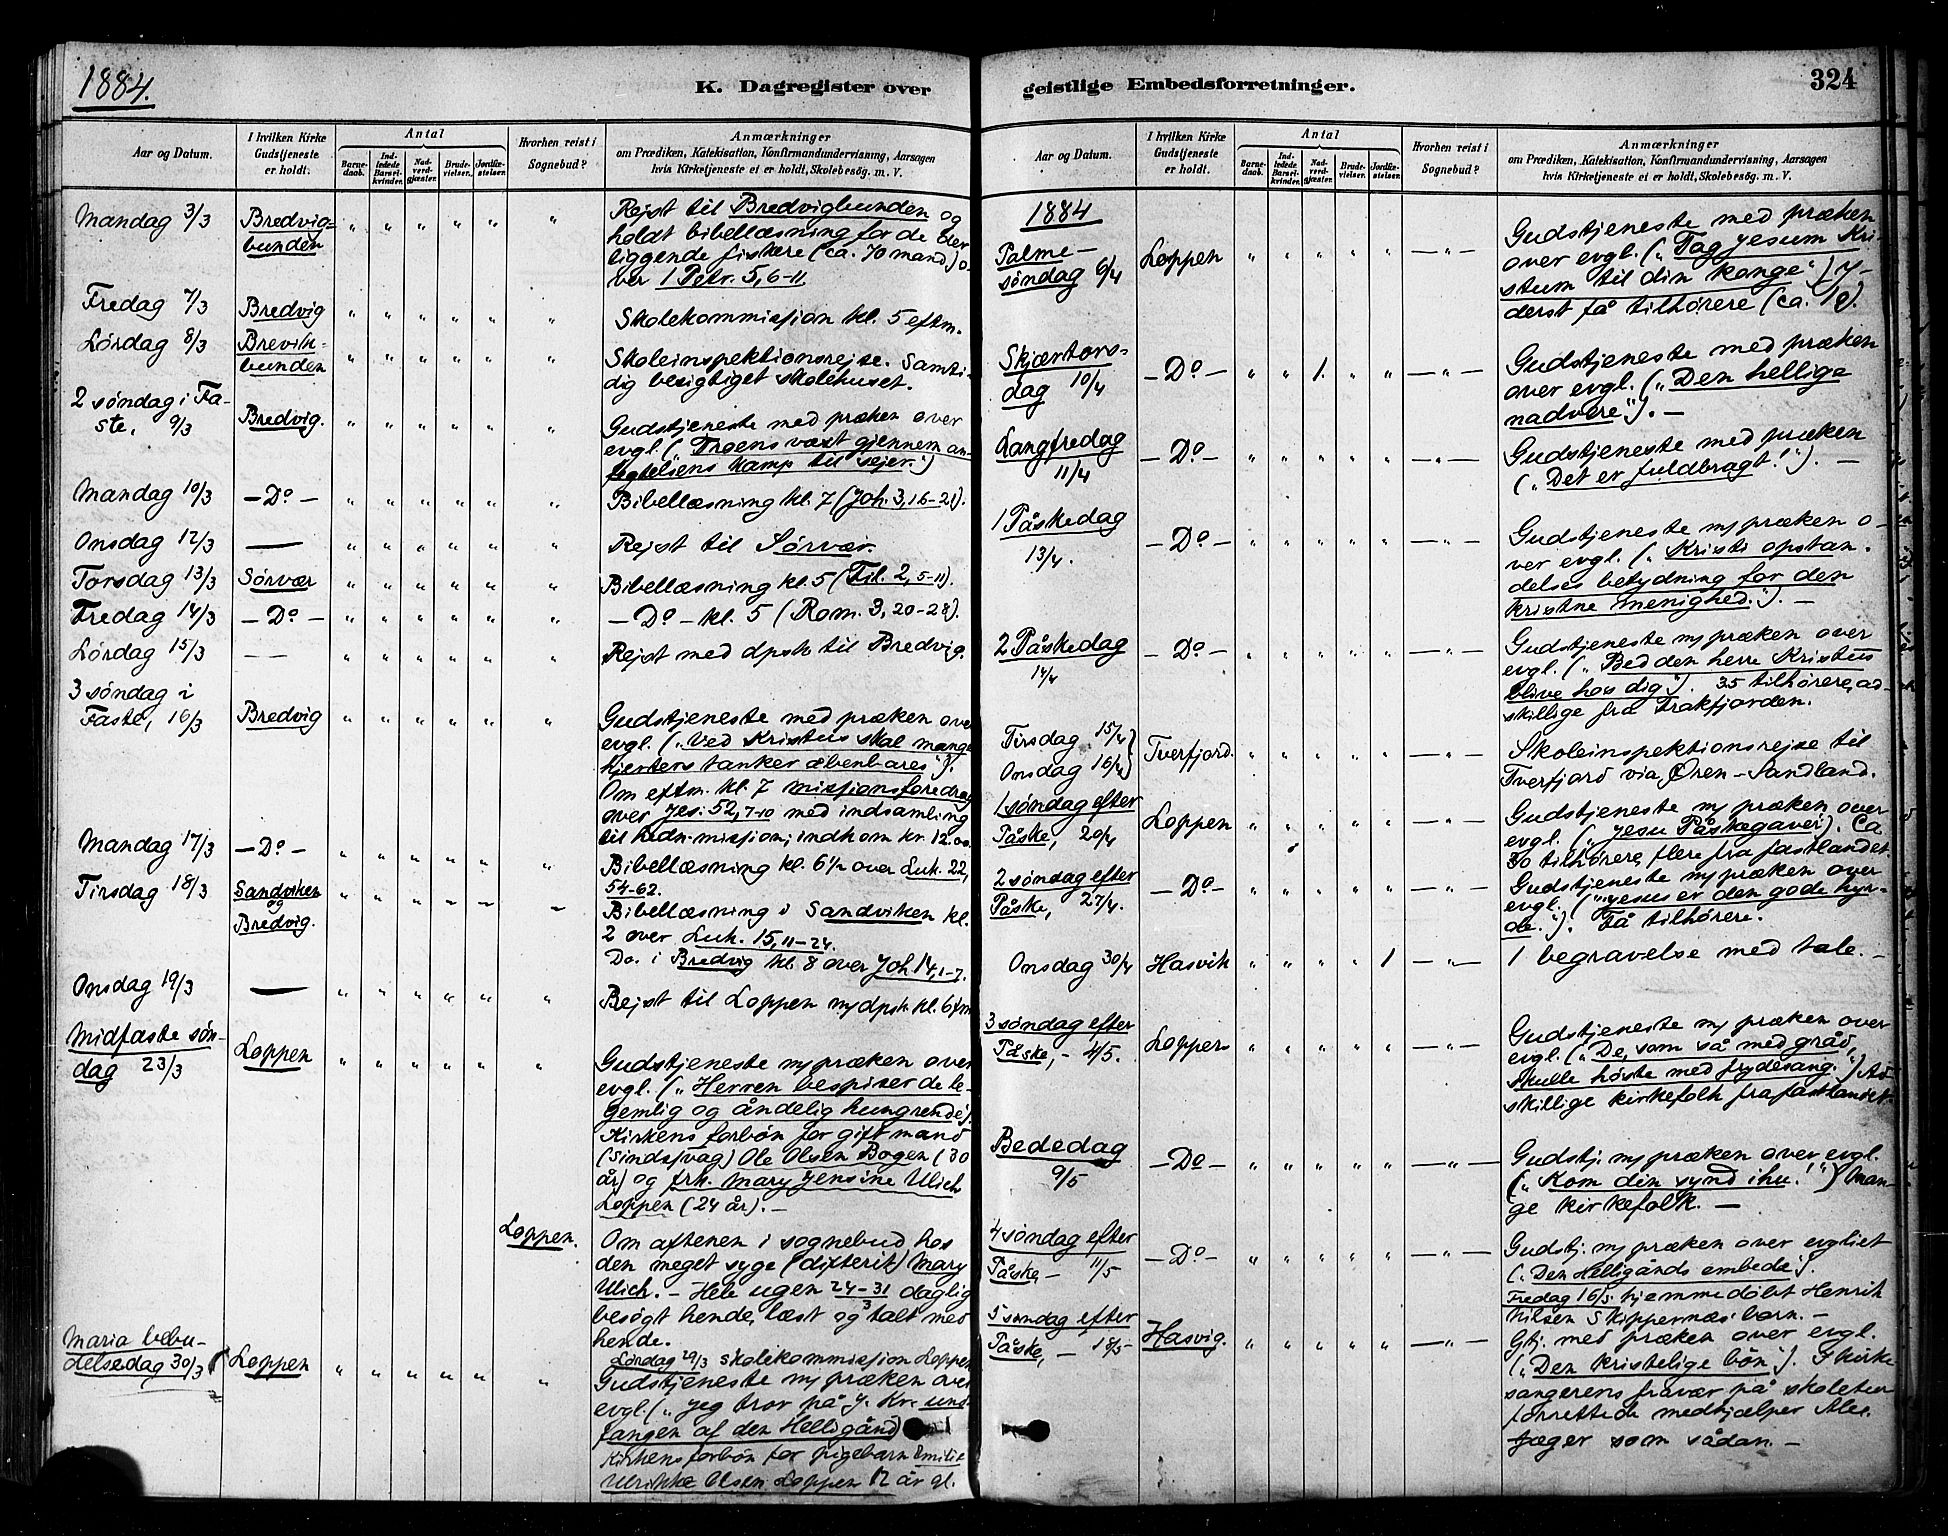 1884.
K. Dagregister over
Aar og Datum.
I hvilken Kirke Gudstjeneste er holdt.
Antal
Barnedaab.
Indledede Barselkvinder.
Nadverdgjæster.
Brudevielser.
Jordfæstelser.
Hvorhen reist i Sognebud?
Anmærkninger
om Prædiken, Katekisation, Konfirmandundervisning, Aarsagen
hvis Kirketjeneste ei er holdt, Skolebesøg. m. V.
Mandag 3/3
Bredvig-
bunden
Rejst til Bredvigbunden og
holdt bibellæsning for de der
liggende fiskere (ca. 70 mand) o-
ver 1 Petr. 5, 6-11.
Fredag 7/3
Bredvig
Skolekommission kl. 5 eftm.
Lørdag 8/3
Brevik-
bunden
Skoleinspektionsrejse. Samti-
dig besigtiget skolehuset.
2 søndag i Fa-
ste, 9/3
Bredvig.
Gudstjeneste med præken over
evgl. („Troens vext gjennem an-
fegtelsens kamp til sejer.")
Mandag 10/3
- Do -
Bibellæsning kl. 7 (Joh. 3, 16-21).
Onsdag 12/3
Rejst til Sørvær.
Torsdag 13/3
Sørvær
Bibellæsning kl. 5 (Fil. 2, 5-11).
Fredag 14/3
- Do -
- Do - kl. 5 (Rom. 3, 20-28).
Lørdag 15/3
Rejst med dpsk til Bredvig.
3 søndag i
Faste, 16/3
Bredvig
Gudstjeneste med præken over
evgl. („Ved Kristus skal mange
hjerters tanker åbenbares").
Om eftm. kl. 7 missionsforedrag
over Jes. 52, 7-10 med indsamling
til hedn. mission; indkom kr. 12.00.
Mandag 17/3
- Do -
Bibellæsning kl. 6½ over Luk. 22,
54-62.
Tirsdag 18/3
Sandviken
og
Bredvig.
Bibellæsning i Sandviken kl.
2 over Luk. 15, 11-24.
Do. i Bredvig kl. 8 over Joh. 14, 1-7.
Onsdag 19/3
Rejst til Loppen m/dpsk kl. 6 fm
Midfaste søn-
dag 23/3
Loppen
Gudstjeneste m/præken over
evgl. („Herren bespiser de le-
gemlig og åndelig hungrende").
Kirkens forbøn for gift mand
(sindssvag) Ole Olsen Bogen (30
år) og frk. Mary Jensine Ulich
Loppen (24 år). -
Loppen.
Om aftenen i sognebud hos
den meget syge (difterit) Mary
Ulich. - Hele ugen 24-31 daglig
3
besøgt hende, læst og talt med
hende.
Lørdag 29/3 skolekommission Loppen
Maria bebu-
delsesdag 30/3
Loppen
Gudstjeneste m/præken over
evgl. („Jeg tror på J. Kr. und-
fangen af den Helligånd)
Kirkens forbøn for pigebarn Emilie
Ulrikke Olsen Loppen 12 år gl.
geistlige Embedsforretninger.
324
Aar og Datum.
I hvilken Kirke Gudstjeneste er holdt.
Antal
Barnedaab.
Indledede Barselkvinder.
Nadverdgjæster.
Brudevielser.
Jordfæstelser.
Hvorhen reist i Sognebud?
Anmærkninger
om Prædiken, Katekisation, Konfirmandundervisning, Aarsagen
hvis Kirketjeneste ei er holdt, Skolebesøg. m. V.
1884
Palme-
søndag 6/4
Loppen
Gudstjeneste med præken
over evgl. („Tag Jesum Kri-
stum til din konge") Y-
derst få tilhørere (ca. 10).
Skjærtors-
dag 10/4
- Do -
1.
Gudstjeneste med præken
over evgl. („Den hellige
nadvere"). -
Langfredag
11/4
- Do -
Gudstjeneste med præken
(„Det er fuldbragt!"). -
1 Påskedag
13/4.
- Do -
Gudstjeneste m/præken o-
ver evgl. („Kristi opstan-
delses betydning for den
kristne menighed."). -
2 Påskedag
14/4
- Do -
Gudstjeneste m/præken over
evgl. („Bed den herre Kristus
blive hos dig"). 35 tilhørere, ad-
skillige fra Frakfjorden.
Tirsdag 15/4
Onsdag 16/4
Tverfjord.
Skoleinspektionsrejse til
Tverfjord via Øren-Sandland.
1 søndag efter
Påske, 20/4
Loppen
Gudstjeneste m/præken over
evgl. („Jesu Påskegaver). Ca
30 tilhørere, flere fra fastlandet.
2 søndag efter
Påske, 27/4.
- Do -
Gudstjeneste m/præken over
evgl. („Jesus er den gode hyr-
de."). Få tilhørere.
Onsdag 30/4
Hasvik
1
1 begravelse med tale. -
3 søndag efter
Påske, - 4/5.
Loppen
Gudstjeneste m/præken over
evgl. („De, som så med gråd,
skulle høste med frydesang.") Ad-
skillige kirkefolk fra fastlandet.
Bededag
9/5
- Do -
Gudstj. m/præken over evgl.
(„Kom din synd ihu!") Man-
ge kirkefolk. -
4 søndag efter
Påske, - 11/5
- Do -
Gudstj. m/præken over evgliet
(„Den Helligånds embede").
Fredag 16/5 hjemmedøbt Henrik
Nilsen Skippernæs' barn. -
5 søndag efter
Påske, - 18/5
Hasvig.
Gtj. med præken over evgl.
(„Den kristelige bøn"). I kirke
sangerens fravær på skoletur
forrettede medhjælper Alex.
Jæger som sådan. -